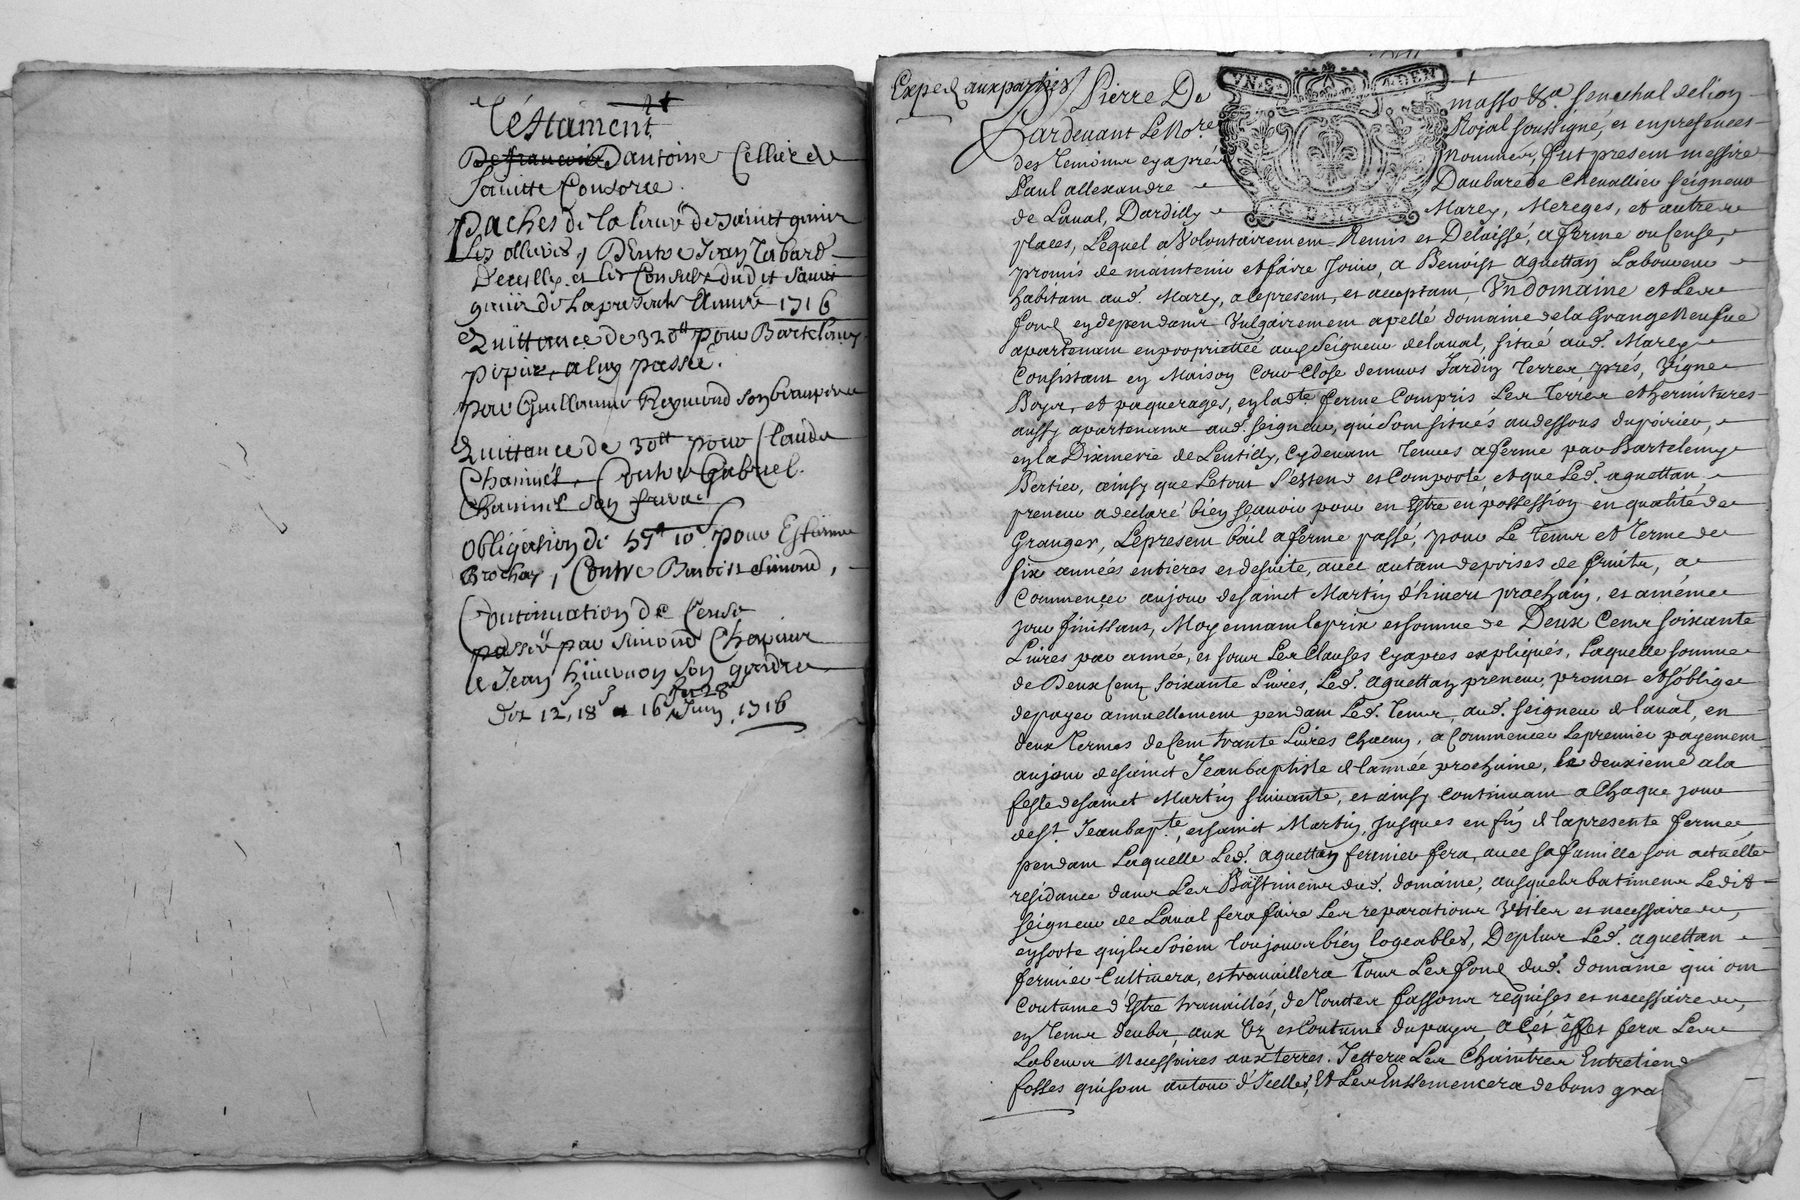 Testament
D'antoine Cellier de
Sainte Consorce.
Paches de la levé de Sainct genis
Les ollieres, Entre Jean Tabard
D'eculley et les Consulz dud et Sainct
genis de La presente Année 1716
Quittance de 320ᵗᵗ pour Bartelemy
pipier, a luy passée.
pour Guillaume Reymond son beaupere
Quittance de 30ᵗᵗ pour Claude
Chainnel, Contre Gabriel
Chainnel son frere
obligation de 57ᵗᵗ 10ˢ pour Estienne
Brochay, Contre Benoist Simond,
Continuation de Cense
passée par Simond
a Jean son gendre
fer 28
Des 12, 18 & 16 Juin, 1716
Exped aux parties
VN.S. 4.DEN
Pierre De masso &a. senechal de lion
Pardevant Le Nore. Royal soussigné, et en presences
des temoins cy aprés Nommés, fut present messire
Paul allexandre Daubarede Chevallier seigneur
de Laval, Dardilly Marcy, Mereges, et autres
places, Lequel a Volontairement Remis et Delaissé, a ferme ou cense,
promis de maintenir et faire Jouir, a Benoist aguettan Laboureur
habitant aud. Marcy, a ce present, et acceptant, Vn domaine et Les
fond en dependans Vulgairement apellé domaine de la Grange Neufue
apartenant en propriettée aud. Seigneur de laval, situé aud. Marcy
Consistant en Maison Cour Close de murs Jardin Terres prés, Vigne
Boys, et paquerages, en lade. ferme Compris Les Terres et hermitures
aussy apartenans aud. seigneur, qui sont situés au dessous du poirier,
en la Dixmerie de Lentilly, cy devant Tenues a ferme par Bartelemy
Bertier, ainsy que Le tout S'estend et Comporte, et que Led. aguettan,
preneur a declaré bien sçauoir pour en Estre en possession en qualité de
Granger, Le present bail a ferme passé, pour Le Tems et Terme de
six années entieres et de suite, avec autant de prises de fruits, a
Commencer au jour de sainct Martin d'hiuert prochain, et a même
jour finissans, Moyennant le prix et somme de Deux Cens soixante
Livres par année, et sous Les Clauses Cy apres expliqués, Laquelle somme
de Deux Cens Soixante Livres, Led. aguettan preneur, promet et s'oblige
de payer annuellement pendant Led. tems, aud. seigneur de laval, en
deux Termes de Cent trante Livres Chacun, a Commencer Le premier payement
au jour de sainct Jean baptiste de l'année prochaine, le deuxieme a la
feste de sainct Martin suivante, et ainsy Continuant a Chaque jour
de st. Jean bapte, et sainct Martin, jusques en fin de la presente ferme,
pendant Laquelle Led. aguettan fermier fera, avec sa famille son actuelle
residance dans Les Bastimens dud. domaine, ausquels batimens Ledit
seigneur de Laval fera faire Les reparations Vtiles et necessaires,
en sorte quils soient Toujours bien logeables, De plus Led. aguettan
fermier Cultivera, et travaillera Tous Les fond dud. domaine qui ont
Coutume d'Estre travaillés, de Touttes fassons requises et necessaires,
en Tems deubs, aux Vz et Coutume du pays a Cet effet fera Les
Labeurs Necessaires aux terres. Jettera Les Chaintres Entretiend
fosses qui sont autour d'Jcelles, Et Les Enssemencera de bons gra